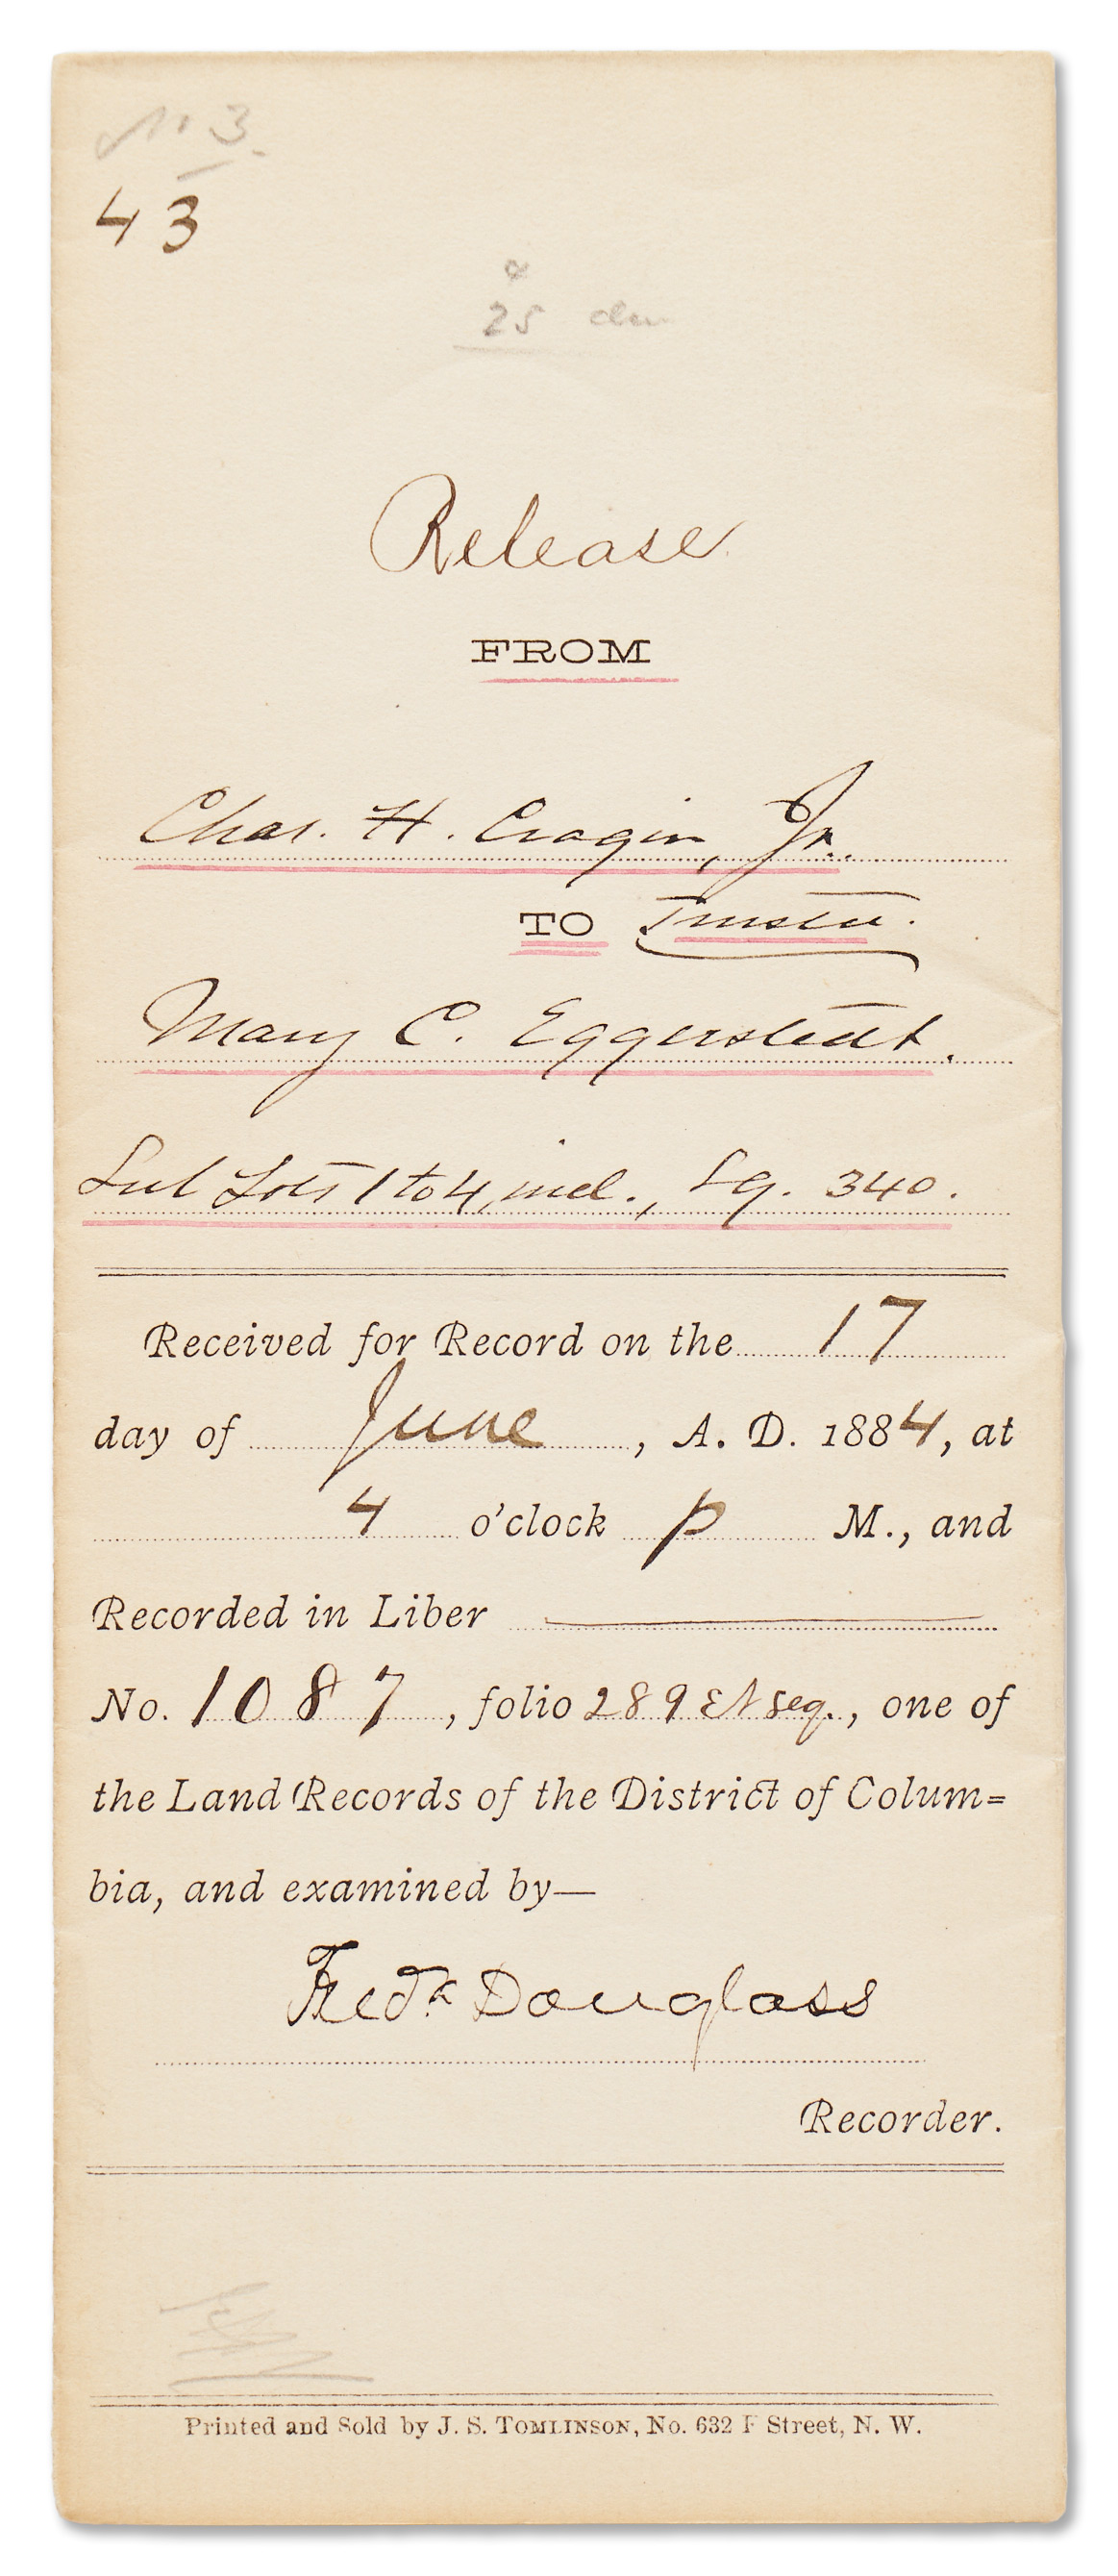 No 3.
43
25
Release
FROM
Chas. H. Cragin, Jr.
TO Trustee.
Mary C. Eggerstedt.
Sub Lots 1 to 4, incl., Sq. 340.
Received for Record on the 17
day of June, A. D. 1884, at
4 o'clock P M., and
Recorded in Liber
No. 1087, folio 289 et seq., one of
the Land Records of the District of Colum=
bia, and examined by—
Fredk Douglass
Recorder.
Printed and Sold by J. S. TOMLINSON, No. 632 F Street, N. W.